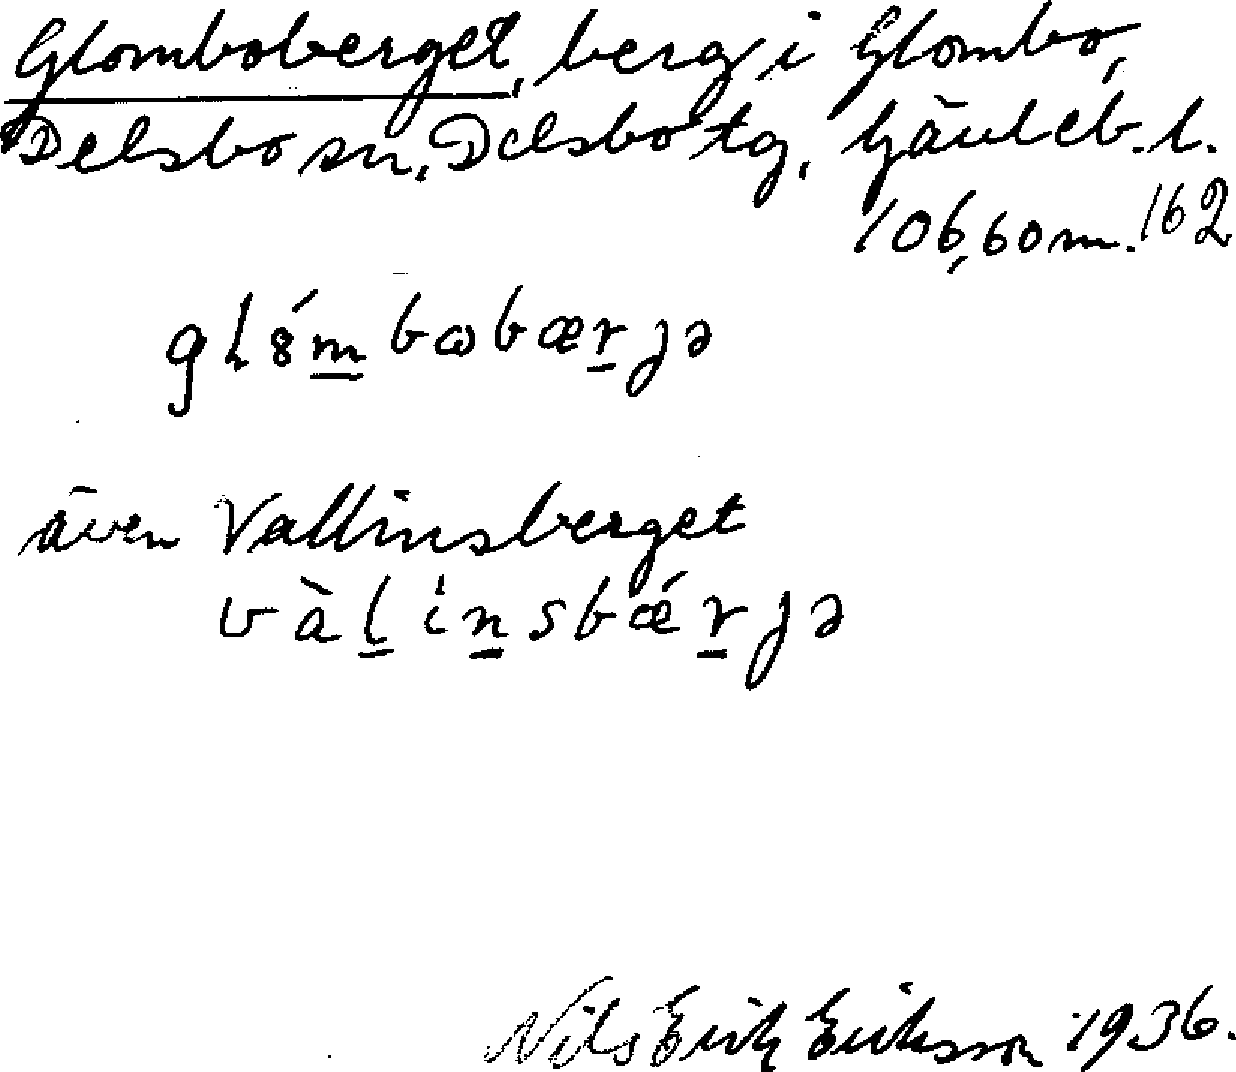 Glomboberget, berg i Glombo,
Delsbo sn, Delsbo tg, Gävleb. l.
106,60 m. 162
även Vallinsberget
Nils Erik Eriksson 1936.